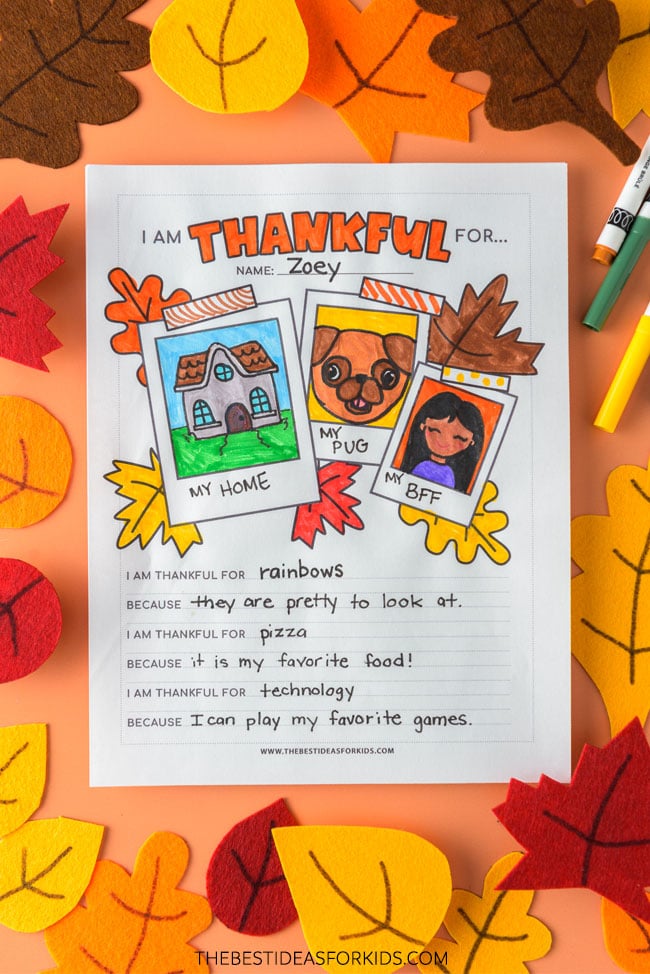 I AM THANKFUL FOR...
NAME: Zoey
MY HOME
MY
PUG
MY
BFF
I AM THANKFUL FOR rainbows
BECAUSE they are pretty to look at.
I AM THANKFUL FOR pizza
BECAUSE it is my favorite food!
I AM THANKFUL FOR technology
BECAUSE I can play my favorite games.
WWW.THEBESTIDEASFORKIDS.COM
THEBESTIDEASFORKIDS.COM